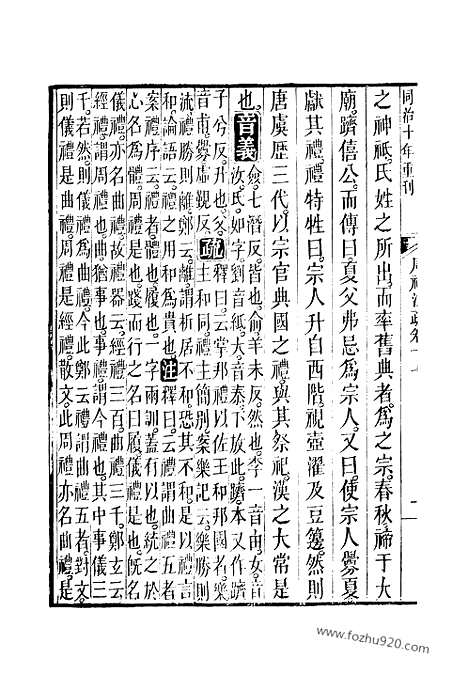 同治十年重刊
周禮注疏卷十七
一
之神祇氏姓之所出而率舊典者爲之宗春秋禘于大
廟躋僖公而傳曰夏父弗忌爲宗人又曰使宗人釁夏
獻其禮禮特牲曰宗人升自西階視壺濯及豆籩然則
唐虞歷三代以宗官典國之禮與其祭祀漢之大常是
也音義僉七潛反皆也俞羊朱反然也李一音由女音
汝氏如字劉音紙大音泰下放此躋本又作隮
子兮反升也疏釋曰云掌邦禮以佐王和邦國者樂
音甫釁虛覲反主和同禮主簡別案樂記云樂勝則
流禮勝則離鄭云離謂析居不和恐其不和是以禮言
和論語云禮之用和爲貴也注釋曰云禮謂曲禮五者
案禮序云禮者體也履也一字兩訓蓋有以也統之於
心名爲體周禮是也踐而行之名曰履儀禮是也旣名
儀禮亦名曲禮故禮器云經禮三百曲禮三千鄭玄云
經禮謂周禮也曲猶事也事禮謂今禮也其中事儀三
千若然則儀禮爲曲禮今此鄭云禮謂曲禮五者對文
則儀禮是曲禮周禮是經禮散文此周禮亦名曲禮是
www.fozhu920.com